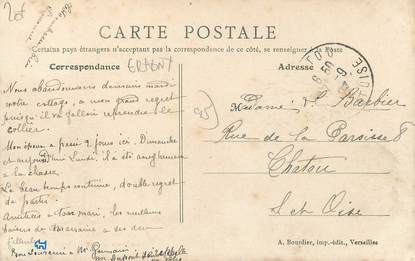 20f
CARTE POSTALE
Certains pays étrangers n'acceptant pas la correspondance de ce côté, se renseigner à la Poste
Correspondance
ERMONT
Adresse
Nous abandonnons demain mardi
votre cottage, à mon grand regret
puisqu'il va falloir reprendre le
collier.
Mon époux a passé 2 jours ici. Dimanche
et aujourd'hui Lundi, il a été
à la chasse.
Le beau temps continue, double regret
de partir.
Amitiés à ton mari, les meilleurs
baisers de Marraine à ses deux
95
Madame Barbier
Rue de la Paroisse 8
Chatou
S et Oise
A. Bourdier, imp.-édit., Versailles